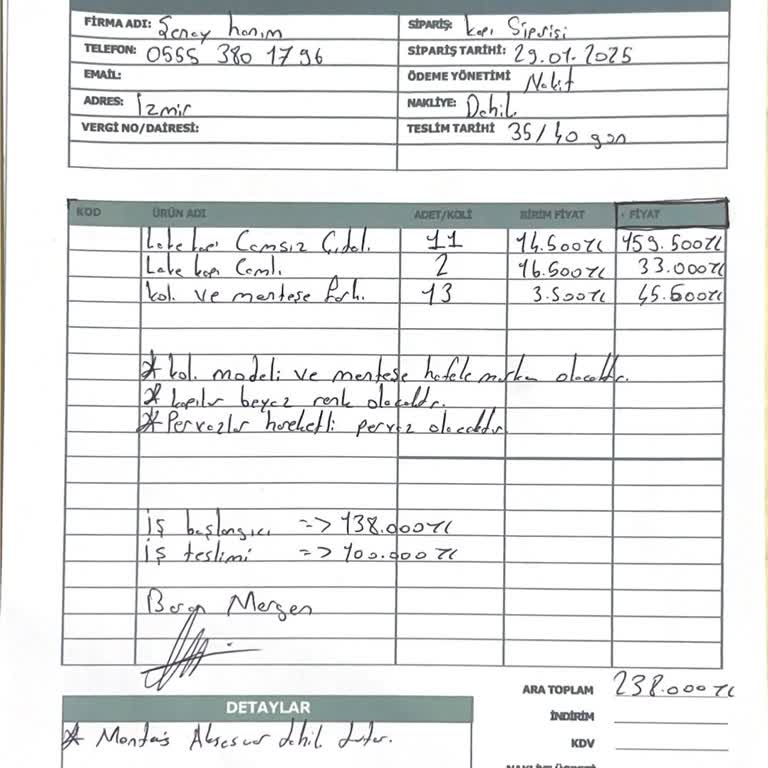 FİRMA ADI: Şenay hanım
SİPARİŞ: kapı Siparişi
TELEFON: 0555 380 1796
SİPARİŞ TARİHİ: 29.01.2025
EMAİL:
ÖDEME YÖNETİMİ Nakit
ADRES: İzmir
NAKLİYE: Dahil
VERGİ NO/DAİRESİ:
TESLİM TARİHİ 35/40 gün
KOD ÜRÜN ADI ADET/KOLİ BİRİM FİYAT FİYAT
Lake kapı Camsız 11 14.500TL 159.500TL
Lake kapı Camlı 2 16.500TL 33.000TL
kol ve menteşe fark. 13 3.500TL 45.500TL
* kol modeli ve menteşe hafele marka olacaktır.
* kapılar beyaz renk olacaktır.
* Pervazlar hareketli pervaz olacaktır
İş başlangıcı => 138.000TL
İş teslimi => 100.000TL
Mergen
ARA TOPLAM 238.000TL
DETAYLAR
İNDİRİM
* Montaj Aksesuar dahil
KDV